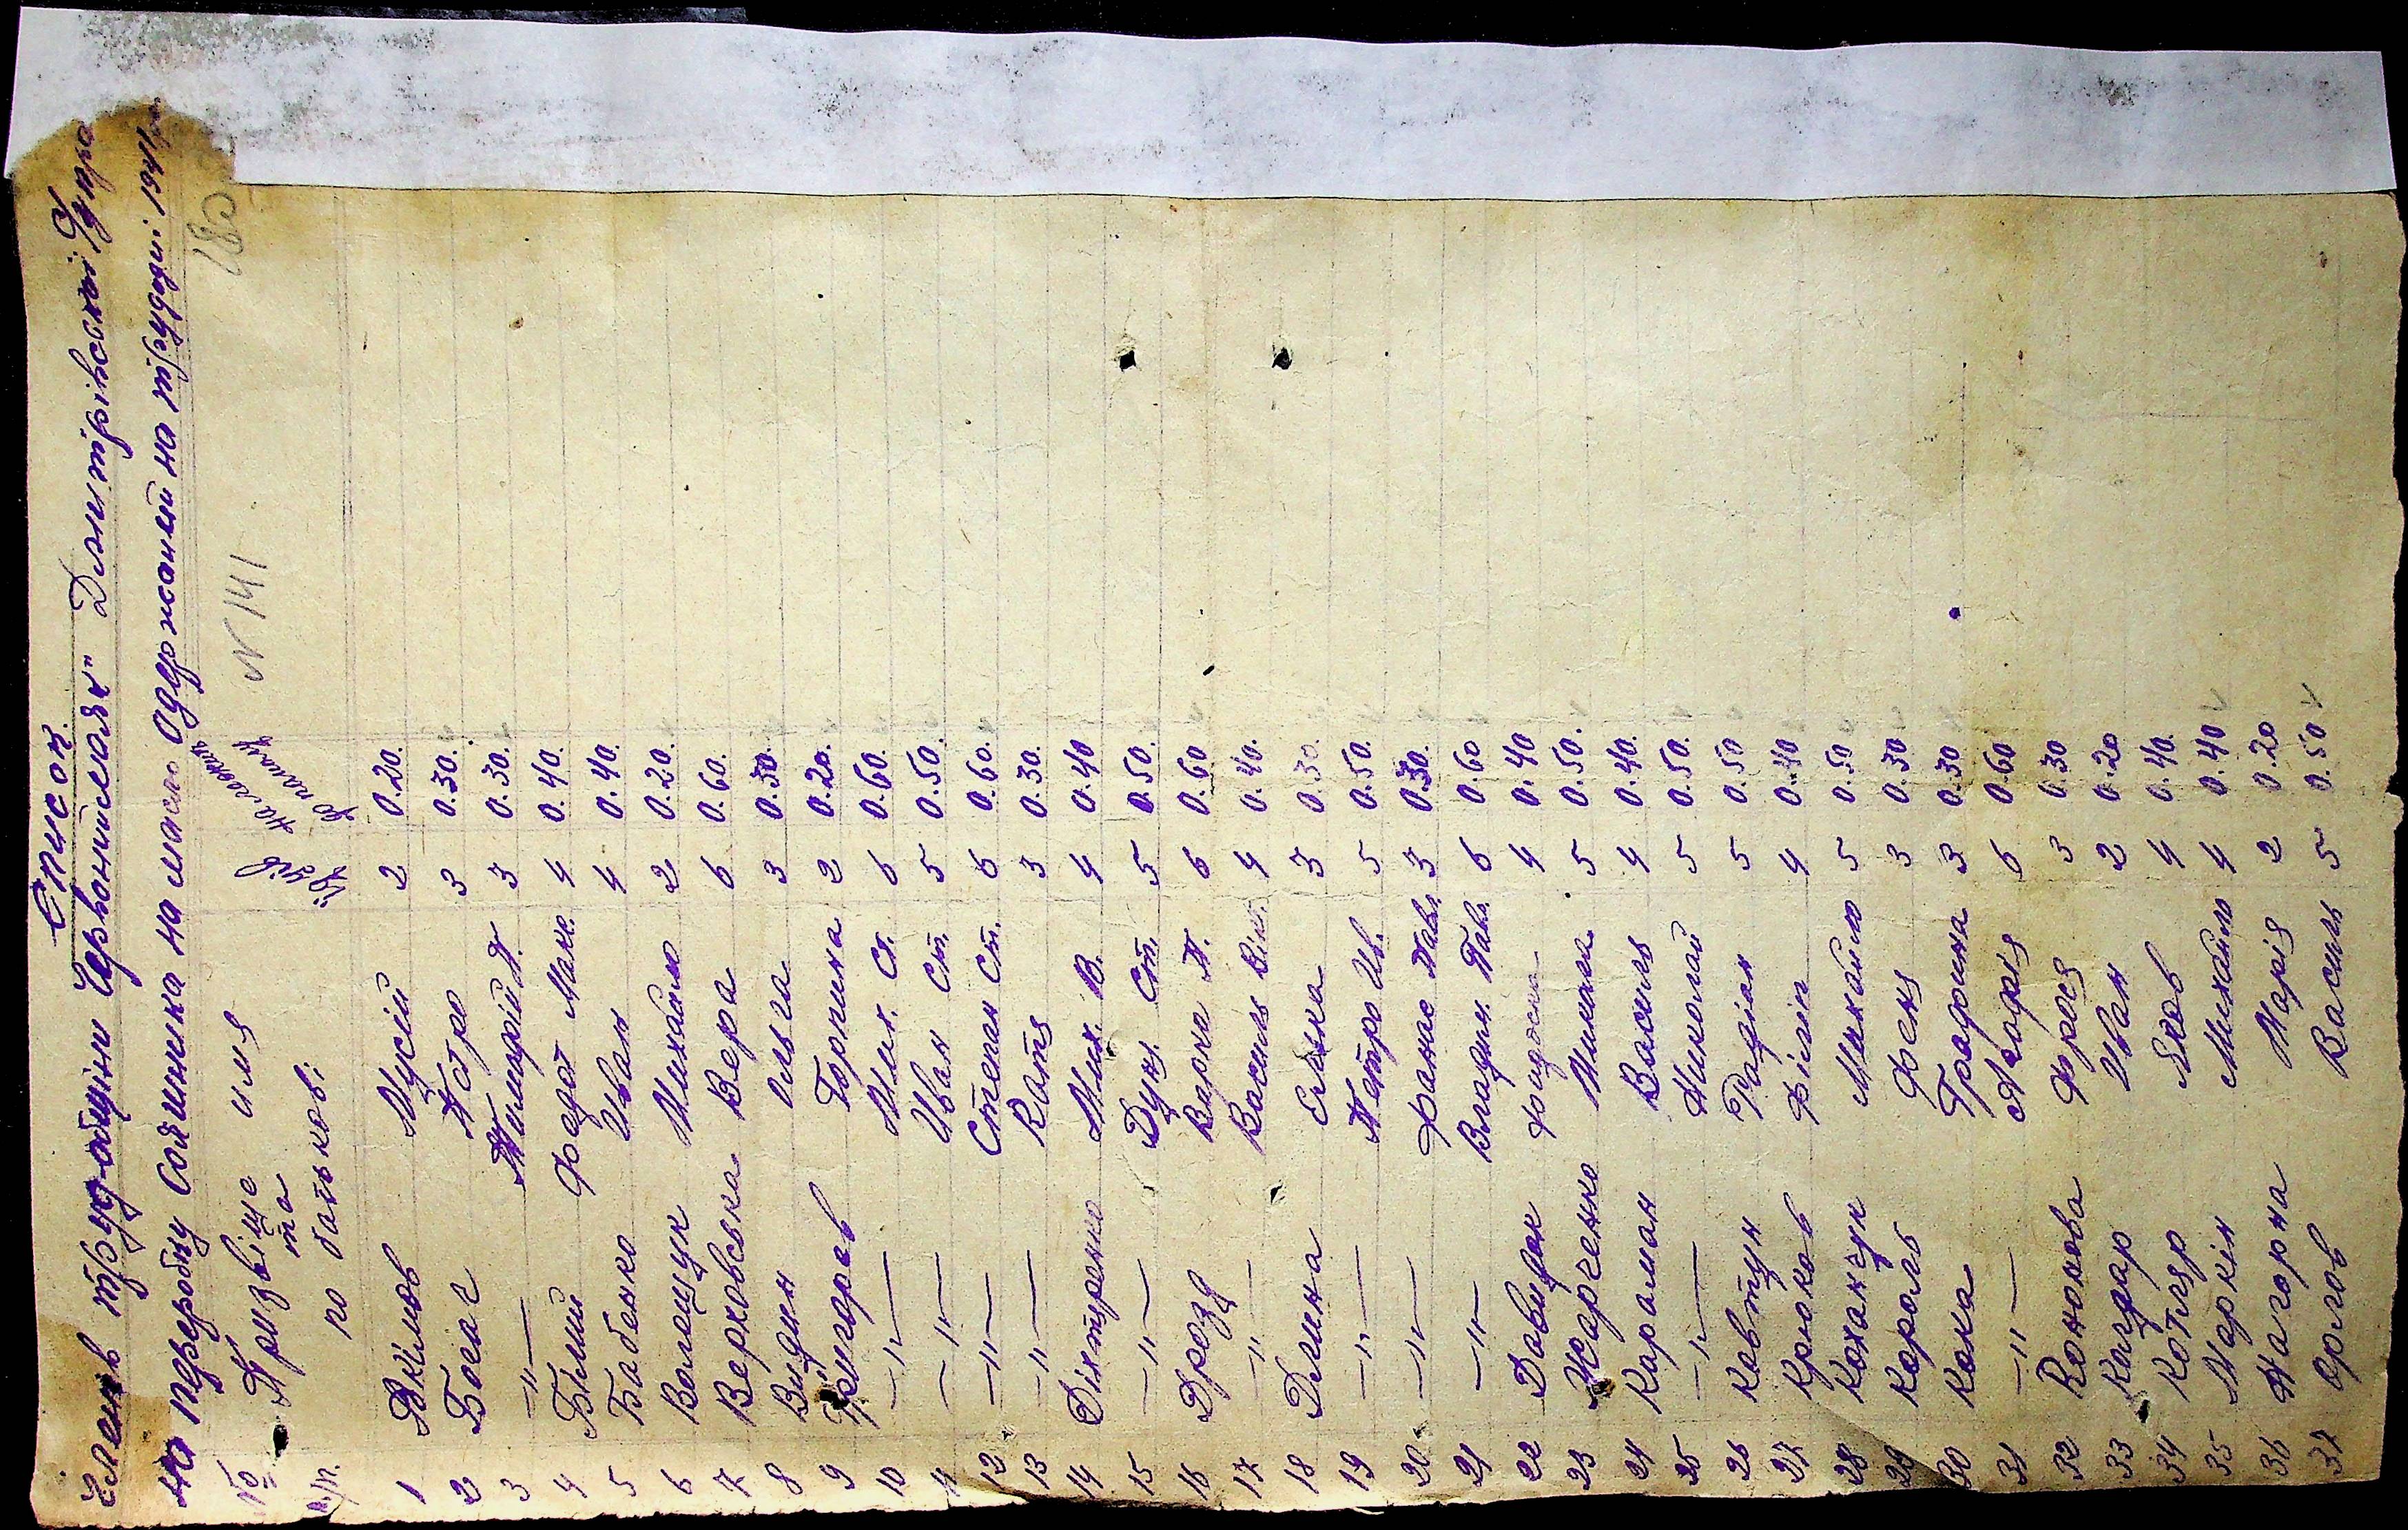 Список
членів труд-общіни Червоний маяк" Дмитрівської Управ
на переробку сояшника на масло Одержаний на трудодні 1941 р.
180
№ п/п. Прызвіще имя та по батькові їдців На човник до помолу N 141
1 Вкілюв Мусій 2 0.20.
2 Босак Петро 3 0.30.
3 —"— Тимофій П. 3 0.30.
4 Білий Федот Макс. 4 0.40.
5 Бабенко Иван 4 0.40.
6 Волещук Михайло 2 0.20.
7 Верховська Вера 6 0.60.
8 Видин Ольга 3 0.30.
9 Григоров Горпина 2 0.20.
10 —"— Мих. Ст. 6 0.60.
11 —"— Иван Ст. 5 0.50.
12 —"— Степан Ст. 6 0.60.
13 —"— Катя 3 0.30.
14 Діхтренко Мих. В. 4 0.40
15 —"— Дуня Ст. 5 0.50.
16 Дрозд Варка П. 6 0.60
17 —"— Василь Вік. 4 0.40.
18 Длина Елька 3 0.30.
19 —"— Петро Ив. 5 0.50.
20 —"— Фанас Павл. 3 0.30.
21 —"— Владим. Павл. 6 0.60
22 Давидюк Фидосия 4 0.40
23 Жарченко Микола 5 0.50.
24 Караман Василь 4 0.40.
25 —"— Николай 5 0.50.
26 Ковтун Радіон 5 0.50
27 Крюков Філіп 4 0.40
28 Коханчук Михайло 5 0.50
29 Король Феня 3 0.30
30 Кока Графина 3 0.30
31 —"— Агафія 6 0.60
32 Кононова Фрося 3 0.30
33 Калдар Иван 2 0.20
34 Котляр Яков 4 0.40.
35 Маркін Михайло 4 0.40
36 Нагорна Марія 2 0.20
37 Орлов Василь 5 0.50